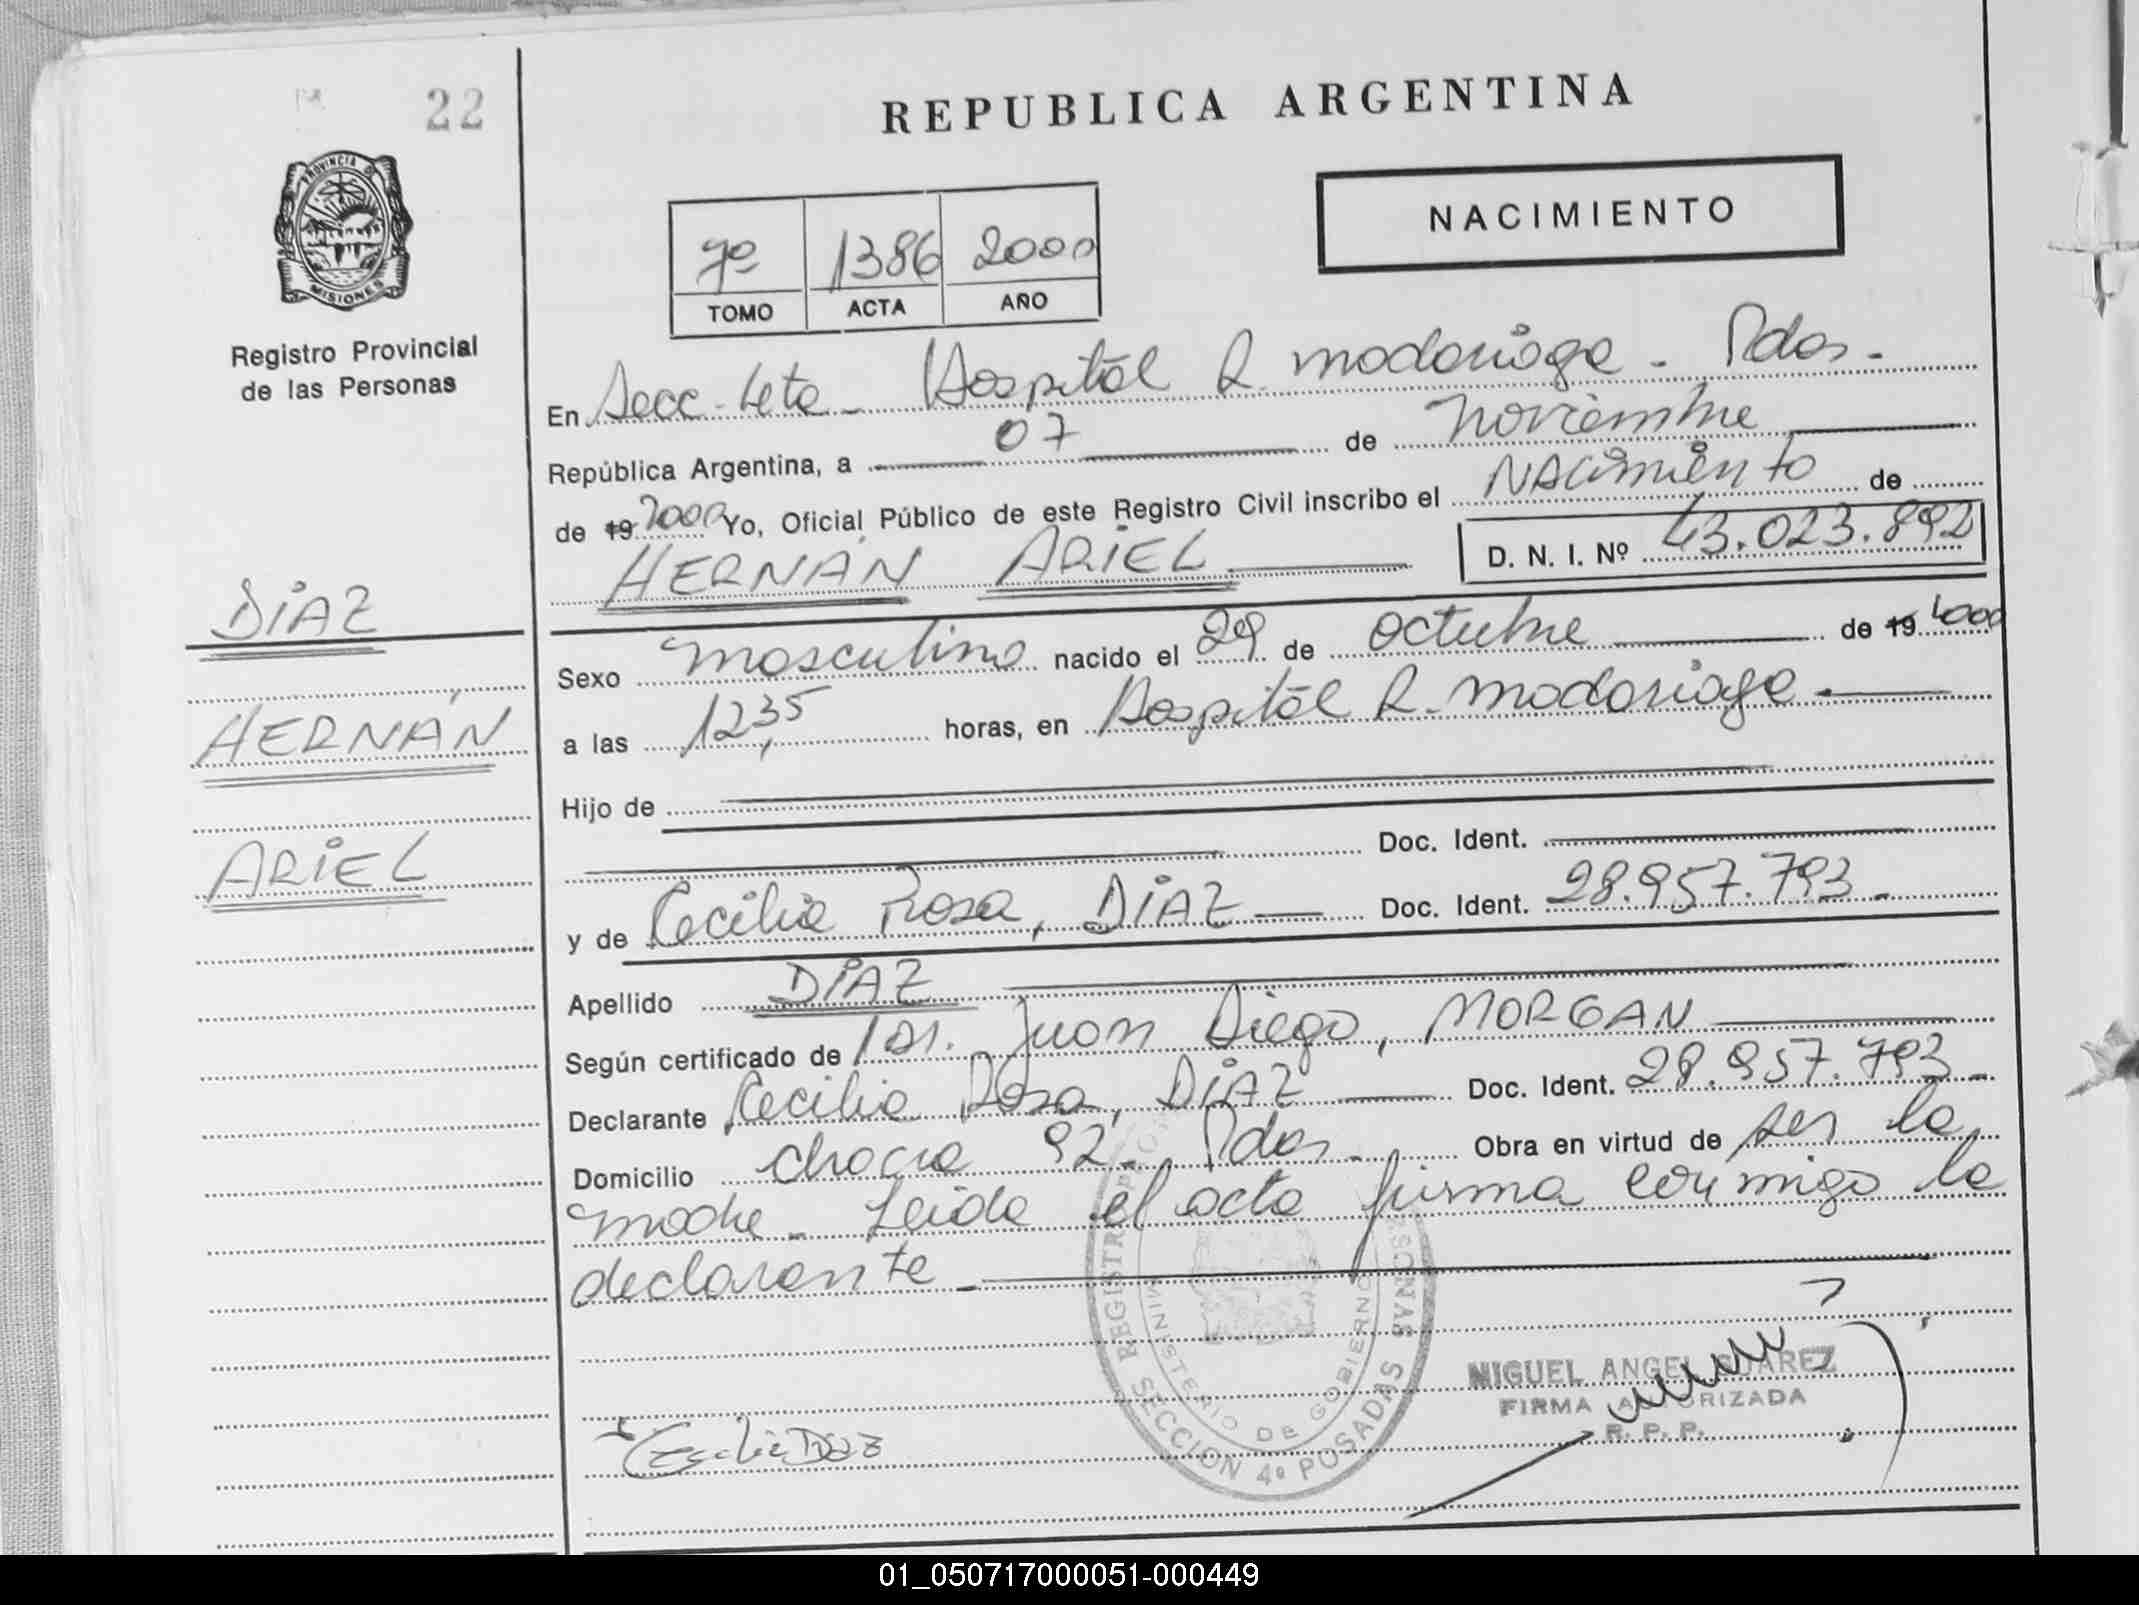 22
REPUBLICA ARGENTINA
NACIMIENTO
PROVINCIA DE
MISIONES
Registro Provincial
de las Personas
7º 1386 2000
TOMO ACTA AÑO
En Secc. 4ta - Hospital R. Madariaga - Pdas.
República Argentina, a 07 de noviembre
de 19 2000 Yo, Oficial Público de este Registro Civil inscribo el NACimiento de
HERNÁN ARIEL D. N. I. Nº 43.023.892
DÍAZ
HERNÁN
ARIEL
Sexo masculino nacido el 29 de octubre de 19 2000
a las 12,35 horas, en Hospital R. Madariaga -
Hijo de
Doc. Ident.
y de Cecilia Rosa, DÍAZ Doc. Ident. 28.957.793.-
Apellido DÍAZ
Según certificado de Dr. Juan Diego, MORGAN
Declarante Cecilia Rosa, DÍAZ Doc. Ident. 28.957.793 -
Domicilio chacra 92 - Pdas. Obra en virtud de ser la
madre - Leida el acta firma conmigo la
declarante -
REGISTRO PERSONAS
MINISTERIO DE GOBIERNO
SECCION 4º POSADAS
MIGUEL ANGEL SUAREZ
FIRMA AUTORIZADA
R. P. P.
Cecilia Diaz
01_050717000051-000449